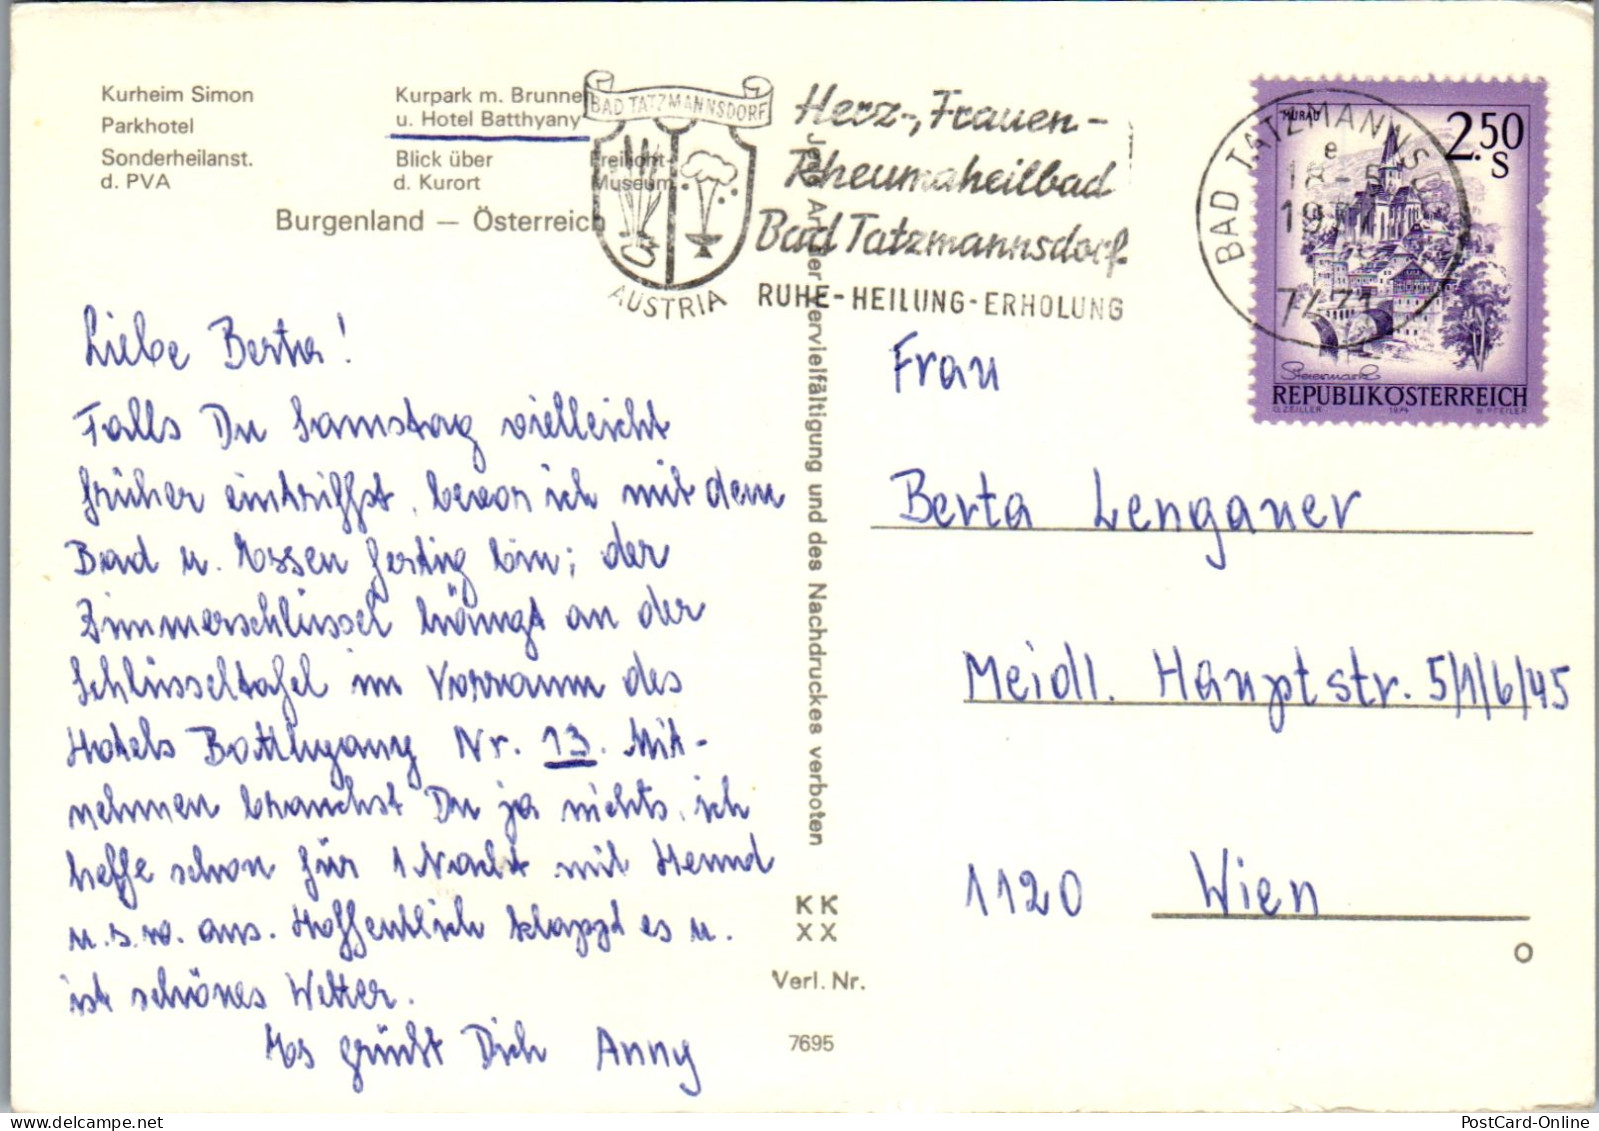 Kurheim Simon
Parkhotel
Sonderheilanst.
d. PVA
Kurpark m. Brunnen
u. Hotel Batthyany
Blick über
d. Kurort
Freilicht-
Museum
Burgenland — Österreich
BAD TATZMANNSDORF
AUSTRIA
Herz-, Frauen-
Rheumaheilbad
Bad Tatzmannsdorf
RUHE-HEILUNG-ERHOLUNG
BAD TATZMANNSDORF
e
18.-5.
7431
MURAU
2.50
S
Steiermark
REPUBLIK ÖSTERREICH
O. ZEILLER 1974 W. PFEILER
Liebe Berta!
Falls Du Samstag vielleicht
früher eintriffst, bevor ich mit dem
Bad u. Essen fertig bin; der
Zimmerschlüssel hängt an der
Schlüsseltafel im Vorraum des
Hotels Batthyany Nr. 13. Mit-
nehmen brauchst Du ja nichts, ich
helfe schon für 1 Nacht mit Hemd
u.s.w. aus. Hoffentlich klappt es u.
ist schönes Wetter.
Es grüßt Dich Anny
Jede Art der Vervielfältigung und des Nachdruckes verboten
KK
XX
Verl. Nr.
7695
Frau
Berta Lengauer
Meidl. Hauptstr. 5/1/6/45
1120 Wien
O
PostCard-Online